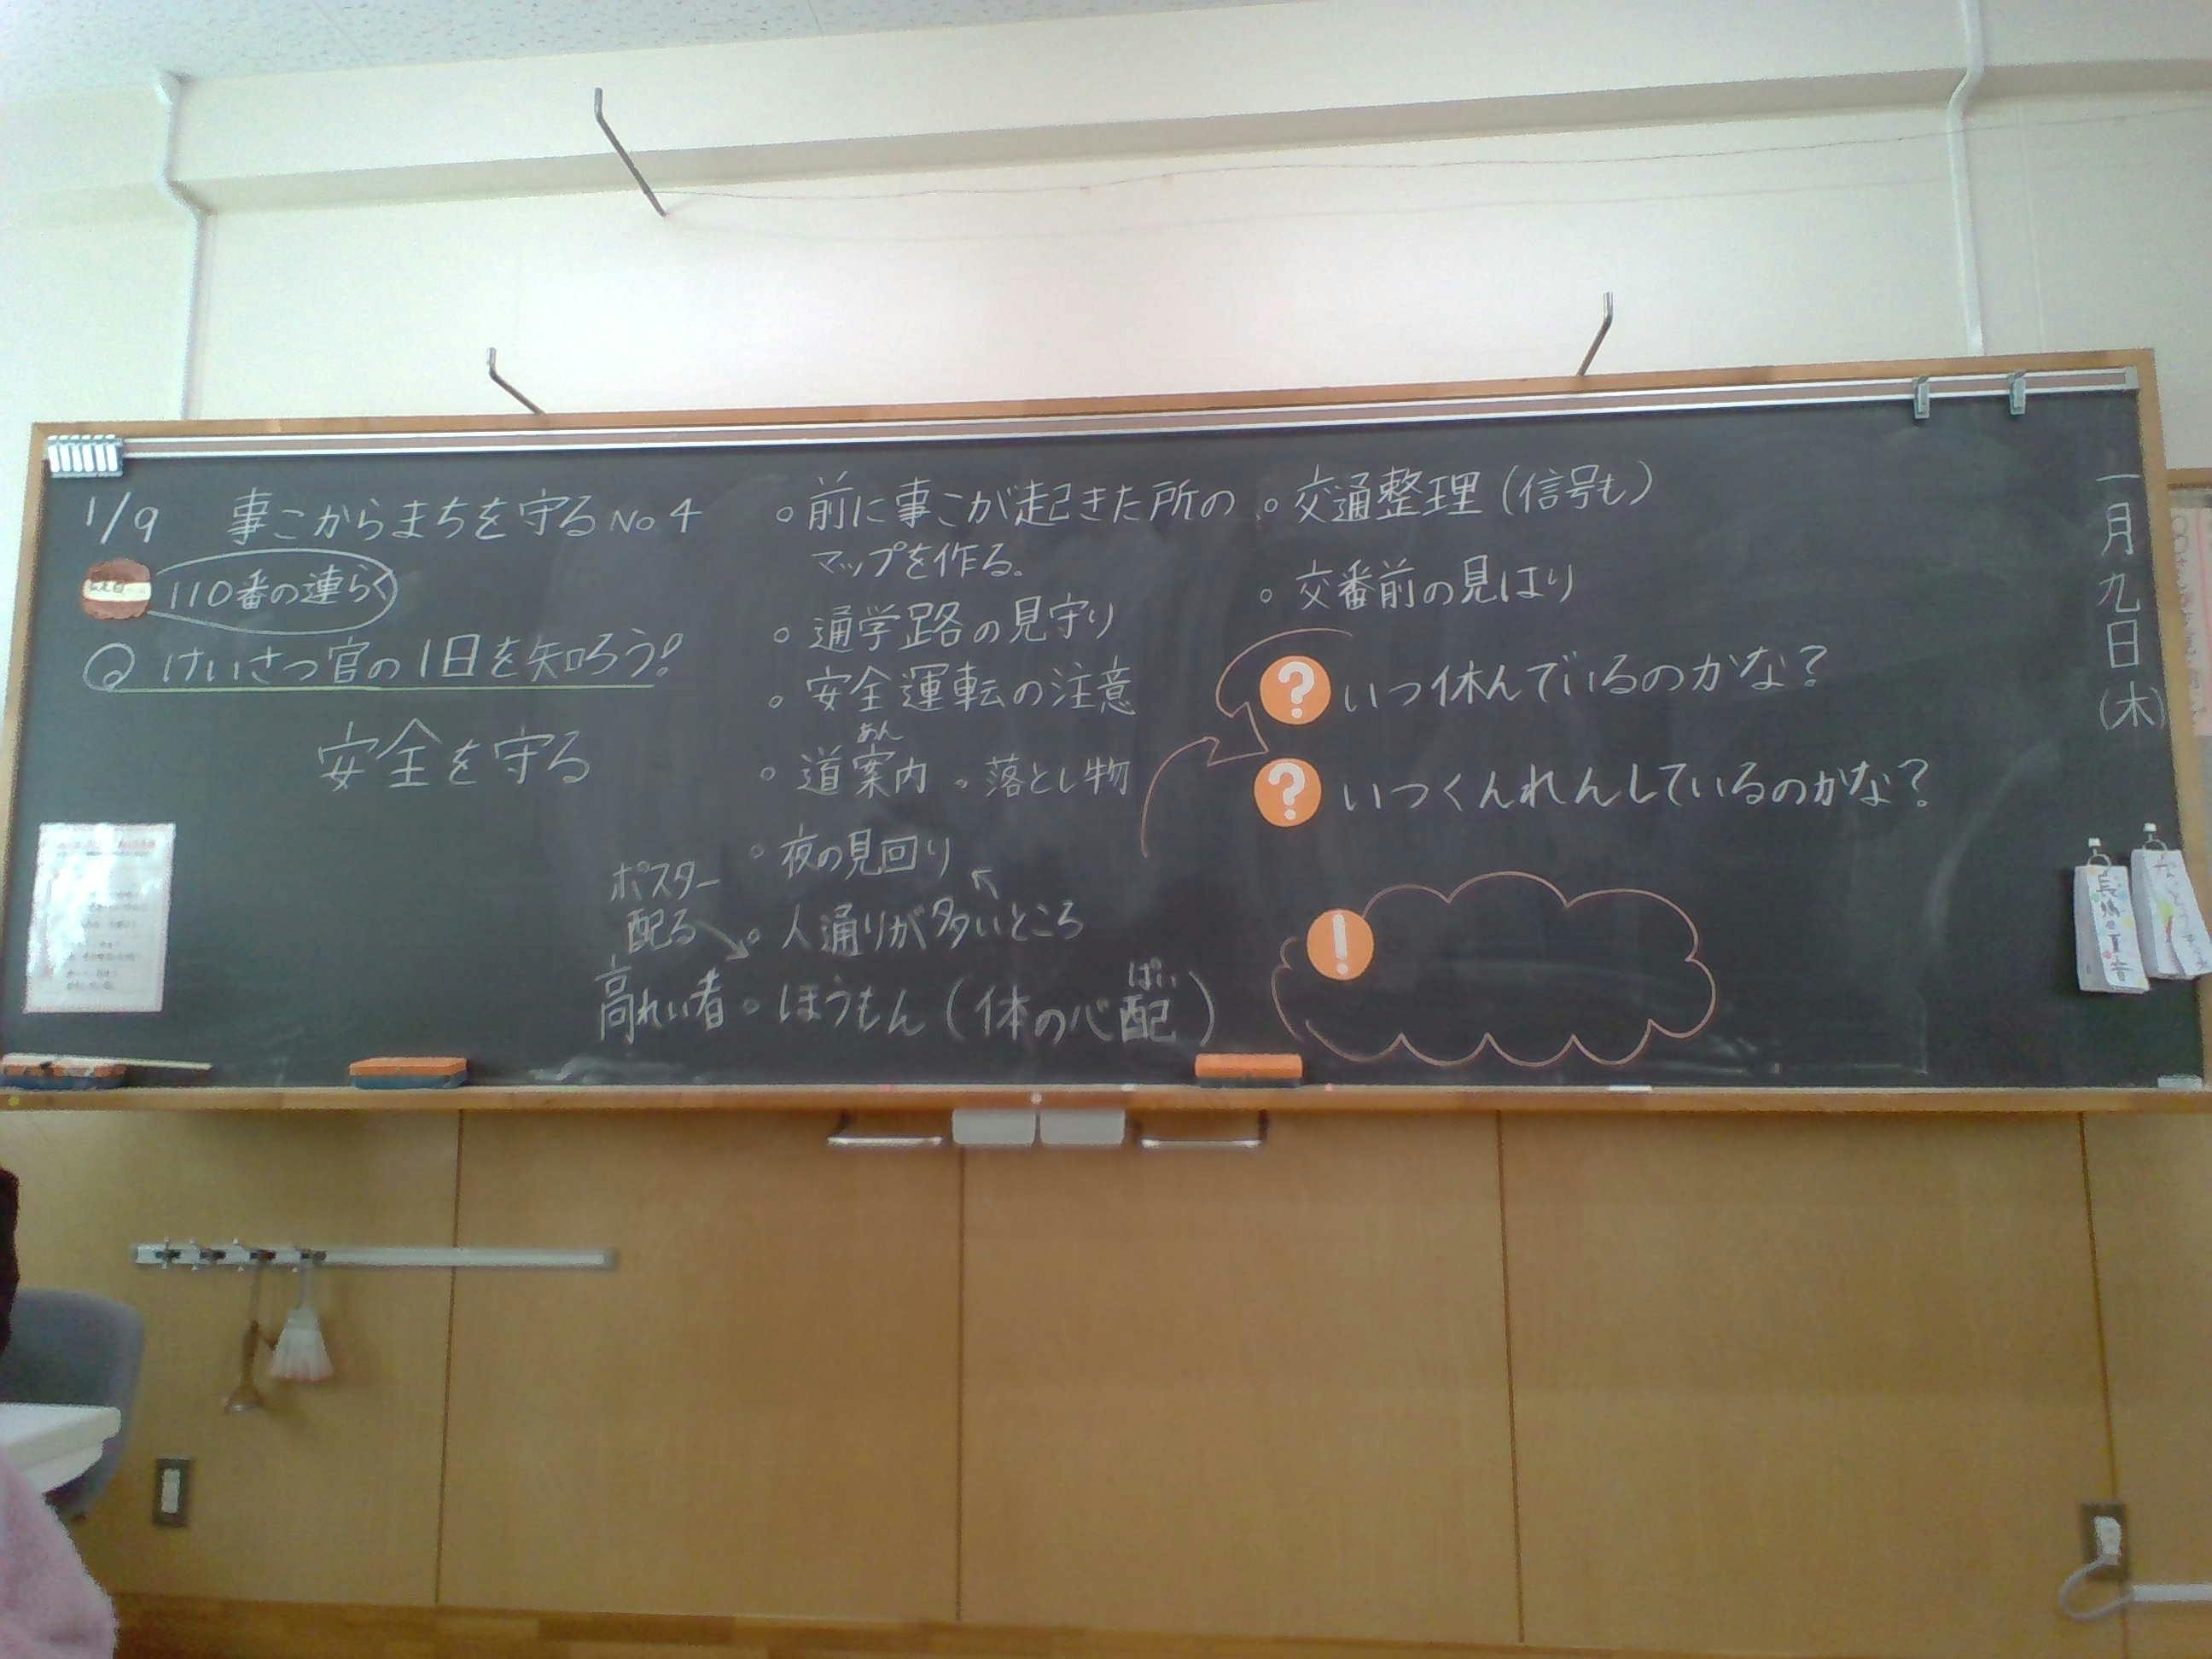 1/9 事こからまちを守る No 4
110番の連らく
Q けいさつ官の1日を知ろう!
安全を守る
。前に事こが起きた所の
マップを作る。
。通学路の見守り
。安全運転の注意
あん
。道案内 。落とし物
。夜の見回り
ポスター
配る
。人通りが多いところ
ぱい
高れい者 。ほうもん(体の心配)
。交通整理(信号も)
。交番前の見はり
? いつ休んでいるのかな?
? いつくんれんしているのかな?
!
一月九日(木)